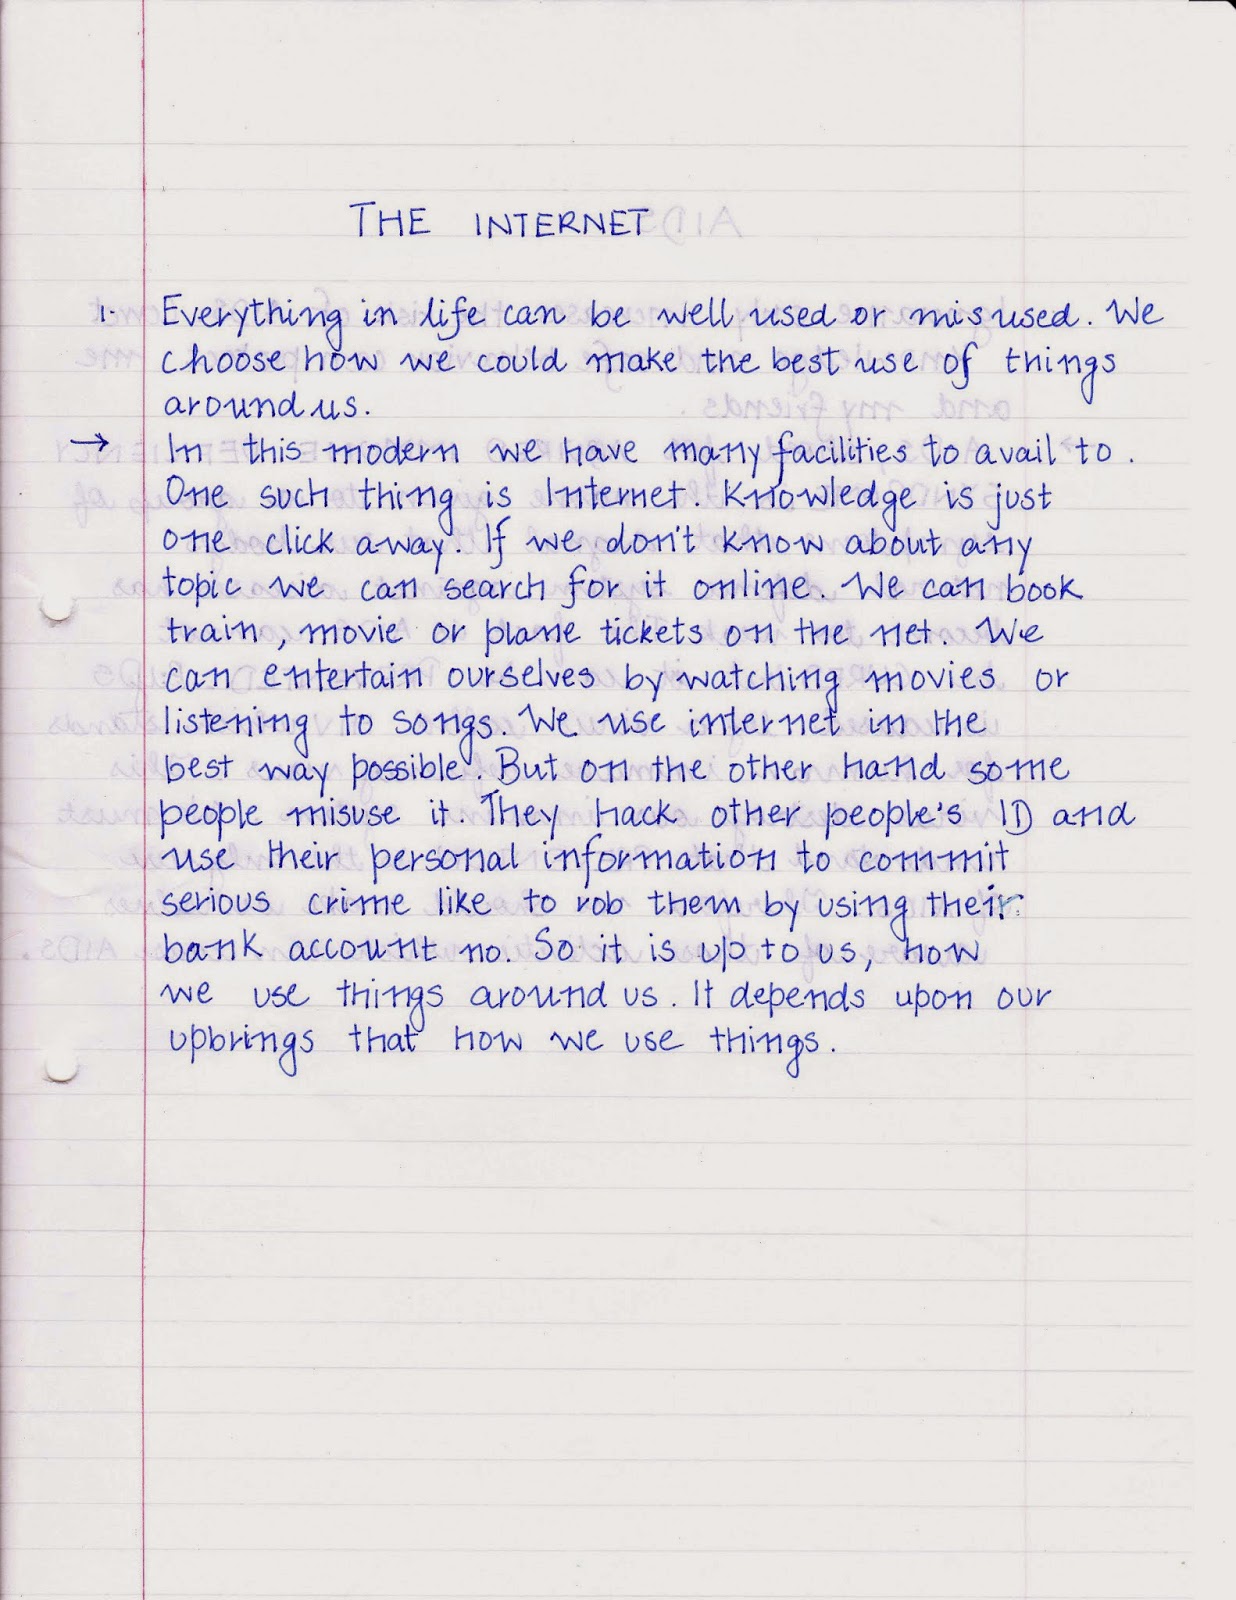 THE INTERNET
1. Everything in life can be well used or misused. We
choose how we could make the best use of things
around us.
→ In this modern we have many facilities to avail to.
One such thing is Internet. Knowledge is just
one click away. If we don't know about any
topic we can search for it online. We can book
train, movie or plane tickets on the net. We
can entertain ourselves by watching movies or
listening to songs. We use internet in the
best way possible. But on the other hand some
people misuse it. They hack other people's ID and
use their personal information to commit
serious crime like to rob them by using their
bank account no. So it is up to us, how
we use things around us. It depends upon our
upbrings that how we use things.